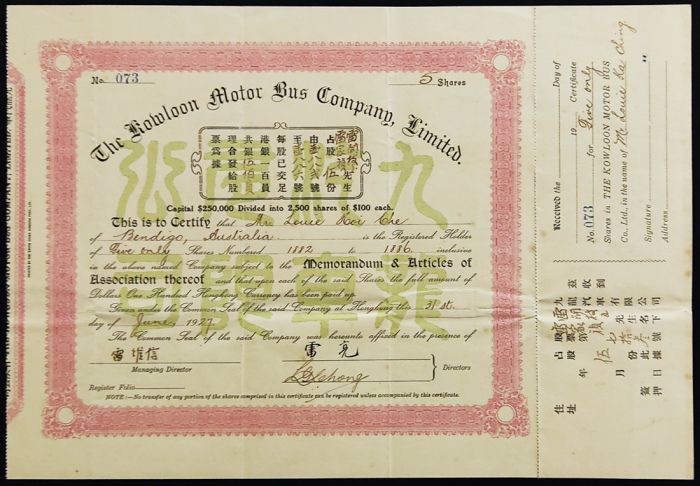 No. 073
5 Shares
The Kowloon Motor Bus Company, Limited.
雷 先生
占股 伍 份
由 號
至 號
每股已交足
港銀一百員
共銀伍佰員
理合發給股
票為據
Capital $250,000 Divided into 2,500 shares of $100 each.
This is to Certify that Mr. Louie Hoi Che
of Bendigo, Australia is the Registered Holder
of Five only Shares Numbered 1882 to 1886 inclusive
in the above named Company subject to the Memorandum & Articles of
Association thereof and that upon each of the said Shares the full amount of
Dollars One Hundred Hongkong Currency has been paid up.
Given under the Common Seal of the said Company at Hongkong the
day of June 1927
The Common Seal of the said Company was hereunto affixed in the presence of
雷維信
雷亮
Managing Director
Directors
Register Folio
NOTE:—No transfer of any portion of the shares comprised in this certificate can be registered unless accompanied by this certificate.
Received the Day of
19 Certificate
No. 073 for Five only
Shares in THE KOWLOON MOTOR BUS
Co., Ltd. in the name of Mr Louie Ka Ching
Signature
Address
茲收到
九龍汽車有限公司
先生名下
占股 伍 份此據
股票 號
年 月 日
簽押
住址